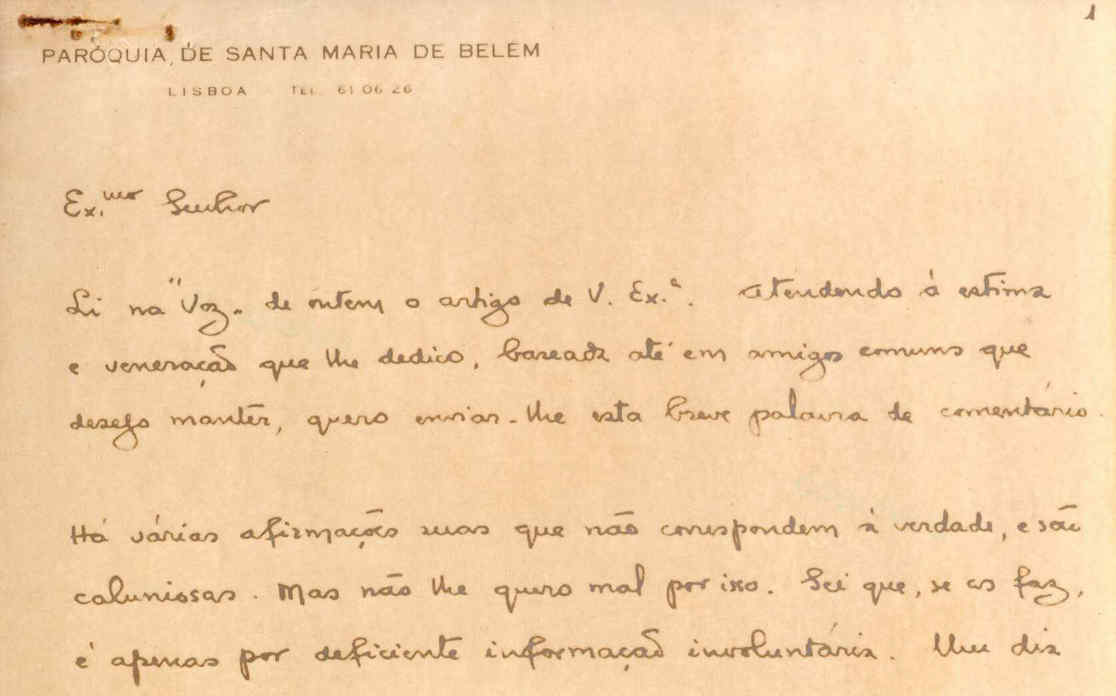 1
PARÓQUIA DE SANTA MARIA DE BELÉM
LISBOA TEL. 61 06 26
Ex.mo Senhor
Li na "Voz" de ontem o artigo de V. Ex.ª. Atendendo à estima
e veneração que lhe dedico, baseada até em amigos comuns que
desejo mantêr, quero enviar-lhe esta breve palavra de comentário.
Há várias afirmações suas que não correspondem à verdade, e são
caluniosas. Mas não lhe quero mal por isso. Sei que, se as faz,
é apenas por deficiente informação involuntária. Um dia